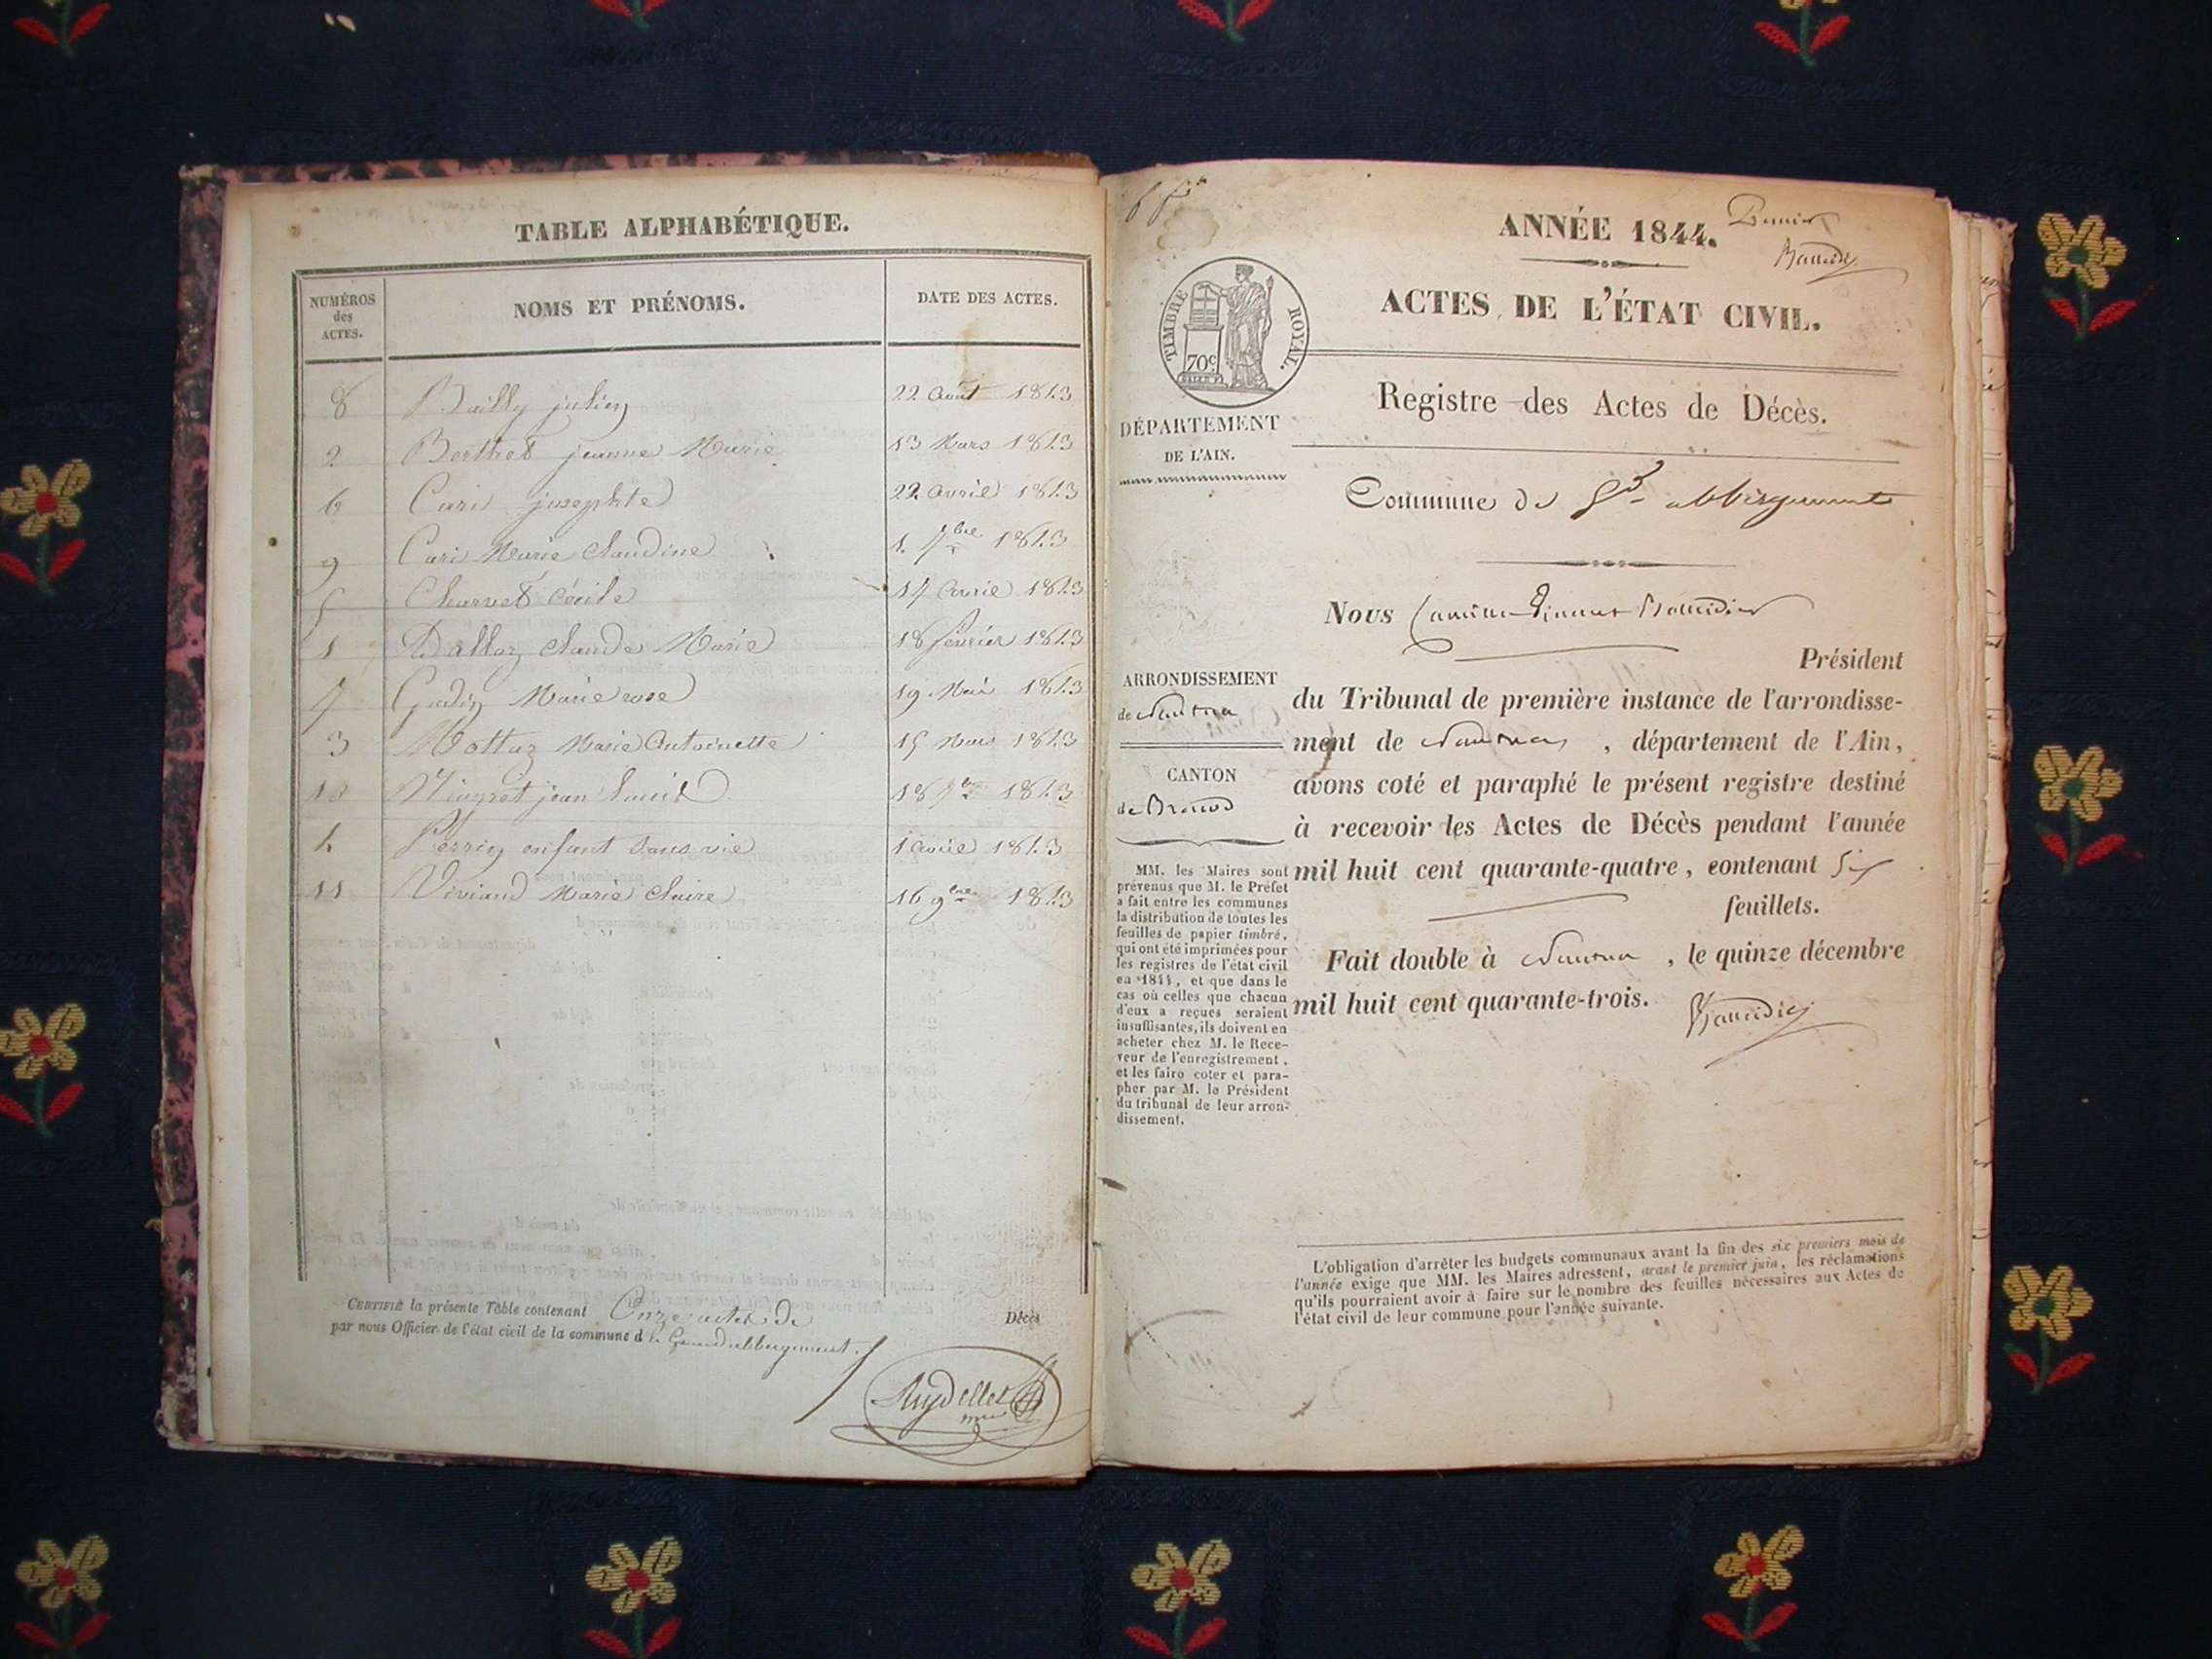 TABLE ALPHABÉTIQUE.
NUMÉROS
des
ACTES.
NOMS ET PRÉNOMS.
DATE DES ACTES.
8 Bailly julien 22 Août 1843
2 Berthet jeanne Marie 13 Mars 1843
6 Cari josephte 22 avril 1843
9 Cari Marie Claudine 1. 7bre 1843
5 Charvet Cécile 14 avril 1843
1 Dallaz claude Marie 18 février 1843
7 Marie rose 19 Mai 1843
3 Mottaz Marie Antoinette 15 Mars 1843
10 jean Louis 18 7bre 1843
4 Perrin enfant sans vie 1 avril 1843
11 Viviand Marie Claire 16 9bre 1843
CERTIFIÉ la présente Table contenant Onze actes de Décès
par nous Officier de l'état civil de la commune d
ANNÉE 1844.
TIMBRE ROYAL.
70c
ACTES DE L'ÉTAT CIVIL.
Registre des Actes de Décès.
DÉPARTEMENT
DE L'AIN.
Commune de Gd abbergement
Nous
Président
ARRONDISSEMENT
de Nantua
du Tribunal de première instance de l'arrondisse-
ment de Nantua, département de l'Ain,
CANTON
de Brenod
avons coté et paraphé le présent registre destiné
à recevoir les Actes de Décès pendant l'année
mil huit cent quarante-quatre, contenant Six
feuillets.
Fait double à Nantua, le quinze décembre
mil huit cent quarante-trois.
Baudier
MM. les Maires sont
prévenus que M. le Préfet
a fait entre les communes
la distribution de toutes les
feuilles de papier timbré,
qui ont été imprimées pour
les registres de l'état civil
en 1844, et que dans le
cas où celles que chacun
d'eux a reçues seraient
insuffisantes, ils doivent en
acheter chez M. le Rece-
veur de l'enregistrement,
et les faire coter et para-
pher par M. le Président
du tribunal de leur arron-
dissement.
L'obligation d'arrêter les budgets communaux avant la fin des six premiers mois de
l'année exige que MM. les Maires adressent, avant le premier juin, les réclamations
qu'ils pourraient avoir à faire sur le nombre des feuilles nécessaires aux Actes de
l'état civil de leur commune pour l'année suivante.